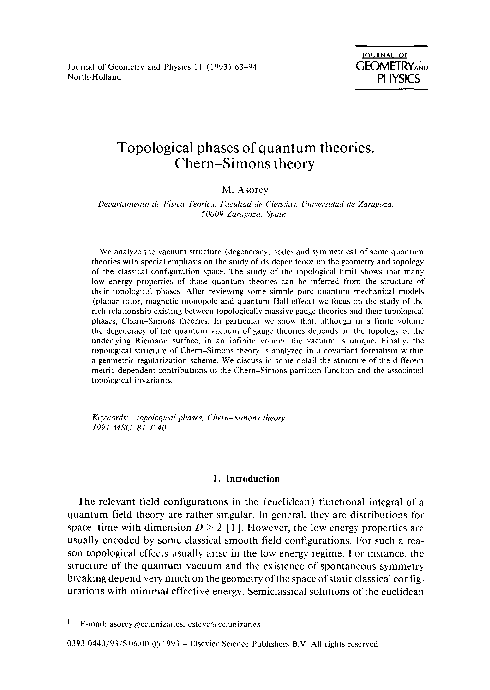 Journal of Geometry and Physics 11 (1993) 63–94
North-Holland
JOURNAL OF
GEOMETRY AND
PHYSICS
Topological phases of quantum theories.
Chern–Simons theory
M. Asorey
Departamento de Física Teórica, Facultad de Ciencias, Universidad de Zaragoza,
50009 Zaragoza, Spain
We analyze the vacuum structure (degeneracy, nodes and symmetries) of some quantum
theories with special emphasis on the study of its dependence on the geometry and topology
of the classical configuration space. The study of the topological limit shows that many
low energy properties of those quantum theories can be inferred from the structure of
their topological phases. After reviewing some simple pure quantum mechanical models
(planar rotor, magnetic monopole and quantum Hall effect) we focus on the study of the
rich relationship existing between topologically massive gauge theories and their topological
phases, Chern–Simons theories. In particular we show that, although in a finite volume
the degeneracy of the quantum vacuum of gauge theories depends on the topology of the
underlying Riemann surface, in an infinite volume the vacuum is unique. Finally, the
topological structure of Chern–Simons theory is analyzed in a covariant formalism within
a geometric regularization scheme. We discuss in some detail the structure of the different
metric dependent contributions to the Chern–Simons partition function and the associated
topological invariants.
Keywords: topological phases, Chern–Simons theory
1991 MSC: 81 T 40
1. Introduction
The relevant field configurations in the (euclidean) functional integral of a
quantum field theory are rather singular. In general, they are distributions for
space–time with dimension D > 2 [1]. However, the low energy properties are
usually encoded by some classical smooth field configurations. For such a rea-
son topological effects usually arise in the low energy regime. For instance, the
structure of the quantum vacuum and the existence of spontaneous symmetry
breaking depend very much on the geometry of the space of static classical config-
urations with minimal effective energy. Semiclassical solutions of the euclidean
1 E-mail: asorey@cc.unizar.es,
0393-0440/93/$06.00 © 1993 – Elsevier Science Publishers B.V. All rights reserved